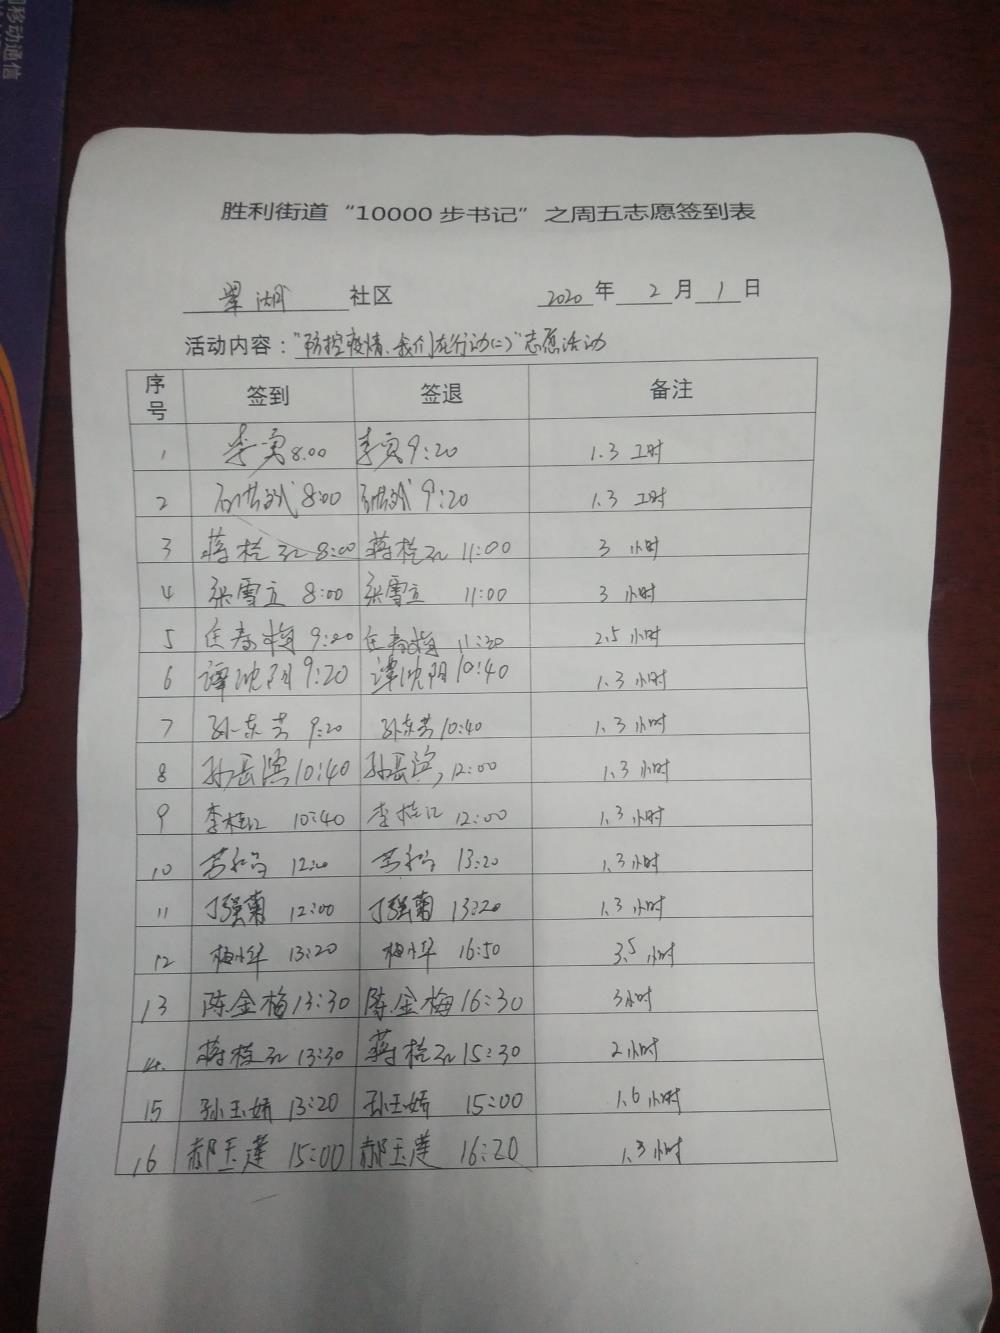 移动通信
胜利街道“10000步书记”之周五志愿签到表
翠湖 社区 2020年2月1日
活动内容：“防控疫情、我们在行动(二)”志愿活动
序号 签到 签退 备注
1 李勇 8:00 李勇 9:20 1.3 工时
2 8:00 9:20 1.3 工时
3 蒋桂 8:00 蒋桂 11:00 3 小时
4 梁雪立 8:00 梁雪立 11:00 3 小时
5 任春梅 9:00 任春梅 11:30 2.5 小时
6 谭沈阳 9:20 谭沈阳 10:40 1.3 小时
7 孙东芳 9:20 孙东芳 10:40 1.3 小时
8 孙岳滨 10:40 孙岳滨 12:00 1.3 小时
9 李桂江 10:40 李桂江 12:00 1.3 小时
10 12:00 13:20 1.3 小时
11 丁强菊 12:00 丁强菊 13:20 1.3 小时
12 梅小华 13:20 梅小华 16:50 3.5 小时
13 陈金梅 13:30 陈金梅 16:30 3小时
14. 蒋桂 13:30 蒋桂 15:30 2小时
15 孙玉娇 13:20 孙玉娇 15:00 1.6 小时
16 郝玉莲 15:00 郝玉莲 16:20 1.3 小时